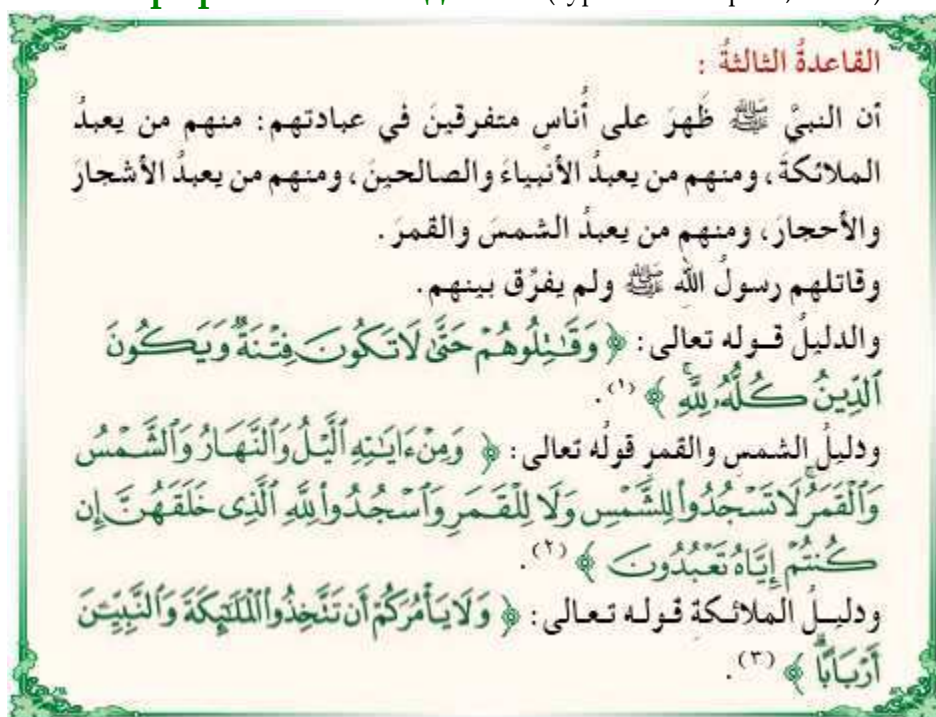 القاعدةُ الثالثةُ :
أن النبيَّ ﷺ ظَهرَ على أُناسٍ متفرقينَ في عبادتهم: منهم من يعبدُ
الملائكةَ، ومنهم من يعبدُ الأنبياءَ والصالحينَ، ومنهم من يعبدُ الأشجارَ
والأحجارَ، ومنهم من يعبدُ الشمسَ والقمرَ.
وقاتلهم رسولُ اللهِ ﷺ ولم يفرِّق بينهم.
والدليلُ قوله تعالى: ﴿ وَقَٰتِلُوهُمْ حَتَّىٰ لَا تَكُونَ فِتْنَةٌ وَيَكُونَ
ٱلدِّينُ كُلُّهُۥ لِلَّهِ ﴾ (١).
ودليلُ الشمسِ والقمرِ قولُه تعالى: ﴿ وَمِنْ ءَايَٰتِهِ ٱلَّيْلُ وَٱلنَّهَارُ وَٱلشَّمْسُ
وَٱلْقَمَرُ ۚ لَا تَسْجُدُوا۟ لِلشَّمْسِ وَلَا لِلْقَمَرِ وَٱسْجُدُوا۟ لِلَّهِ ٱلَّذِى خَلَقَهُنَّ إِن
كُنتُمْ إِيَّاهُ تَعْبُدُونَ ﴾ (٢).
ودليلُ الملائكةِ قوله تعالى: ﴿ وَلَا يَأْمُرَكُمْ أَن تَتَّخِذُوا۟ ٱلْمَلَٰٓئِكَةَ وَٱلنَّبِيِّـۧنَ
أَرْبَابًا ۗ ﴾ (٣).